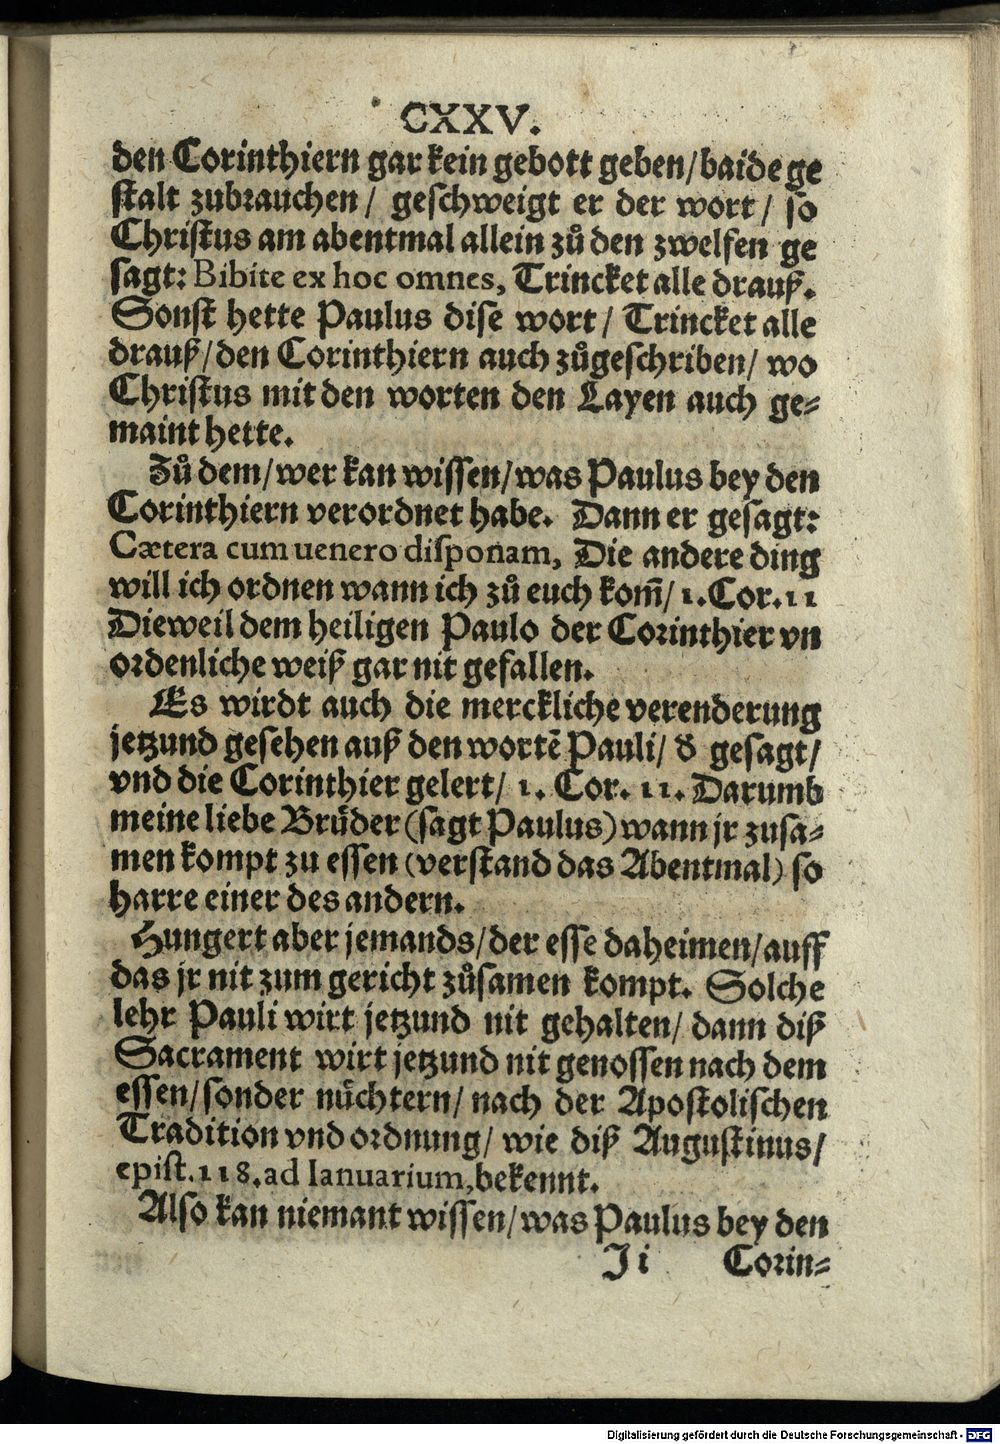 CXXV.
den Corinthiern gar kein gebott geben/ baide ge
stalt zubrauchen/ geschweigt er der wort/ so
Christus am abentmal allein zů den zwelfen ge
sagt: Bibite ex hoc omnes, Trincket alle drauß.
Sonst hette Paulus dise wort/ Trincket alle
drauß/ den Corinthiern auch zůgeschriben/ wo
Christus mit den worten den Layen auch ge⸗
maint hette.
Zů dem/ wer kan wissen/ was Paulus bey den
Corinthiern verordnet habe. Dann er gesagt:
Cætera cum uenero disponam, Die andere ding
will ich ordnen wann ich zů euch kom̃/ 1. Cor. 11
Dieweil dem heiligen Paulo der Corinthier vn
ordenliche weiß gar nit gefallen.
Es wirdt auch die merckliche verenderung
jetzund gesehen auß den wortē Pauli/ d̓ gesagt/
vnd die Corinthier gelert/ 1. Cor. 11. Darumb
meine liebe Brůder (sagt Paulus) wann jr zusa⸗
men kompt zu essen (verstand das Abentmal) so
harre einer des andern.
Hungert aber jemands/ der esse daheimen/ auff
das jr nit zum gericht zůsamen kompt. Solche
lehr Pauli wirt jetzund nit gehalten/ dann diß
Sacrament wirt jetzund nit genossen nach dem
essen/ sonder nůchtern/ nach der Apostolischen
Tradition vnd ordnung/ wie diß Augustinus/
epist. 118. ad Ianuarium, bekennt.
Also kan niemant wissen/ was Paulus bey den
Ji Corin⸗
Digitalisierung gefördert durch die Deutsche Forschungsgemeinschaft - DFG